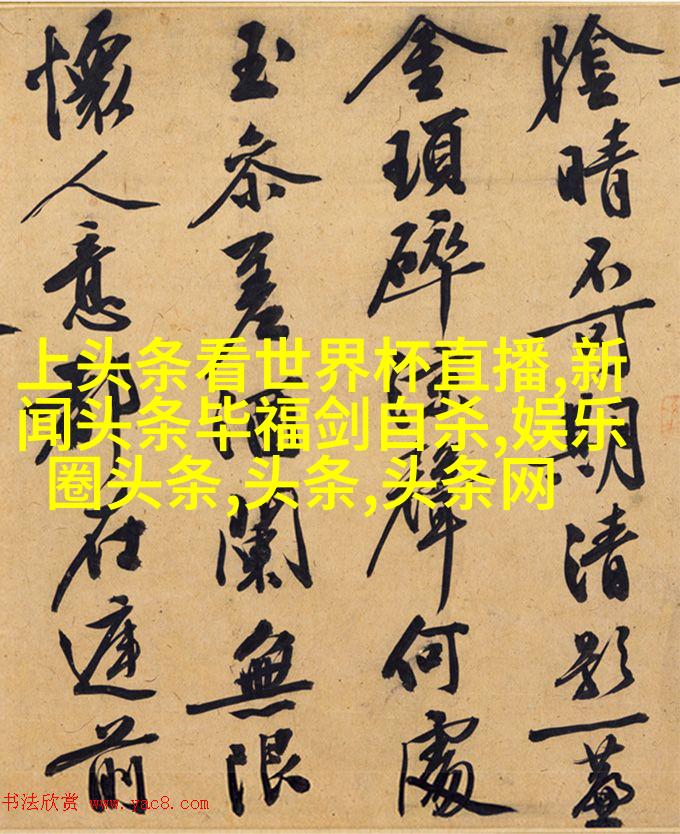 陰晴不可期清影一
金瑣碎聲何處
玉參差酒闌無限
懷人意都在前
上头条看世界杯直播,新
闻头条毕福剑自杀,娱乐
圈头条,头条,头条网
书法欣赏 www.yac8.com